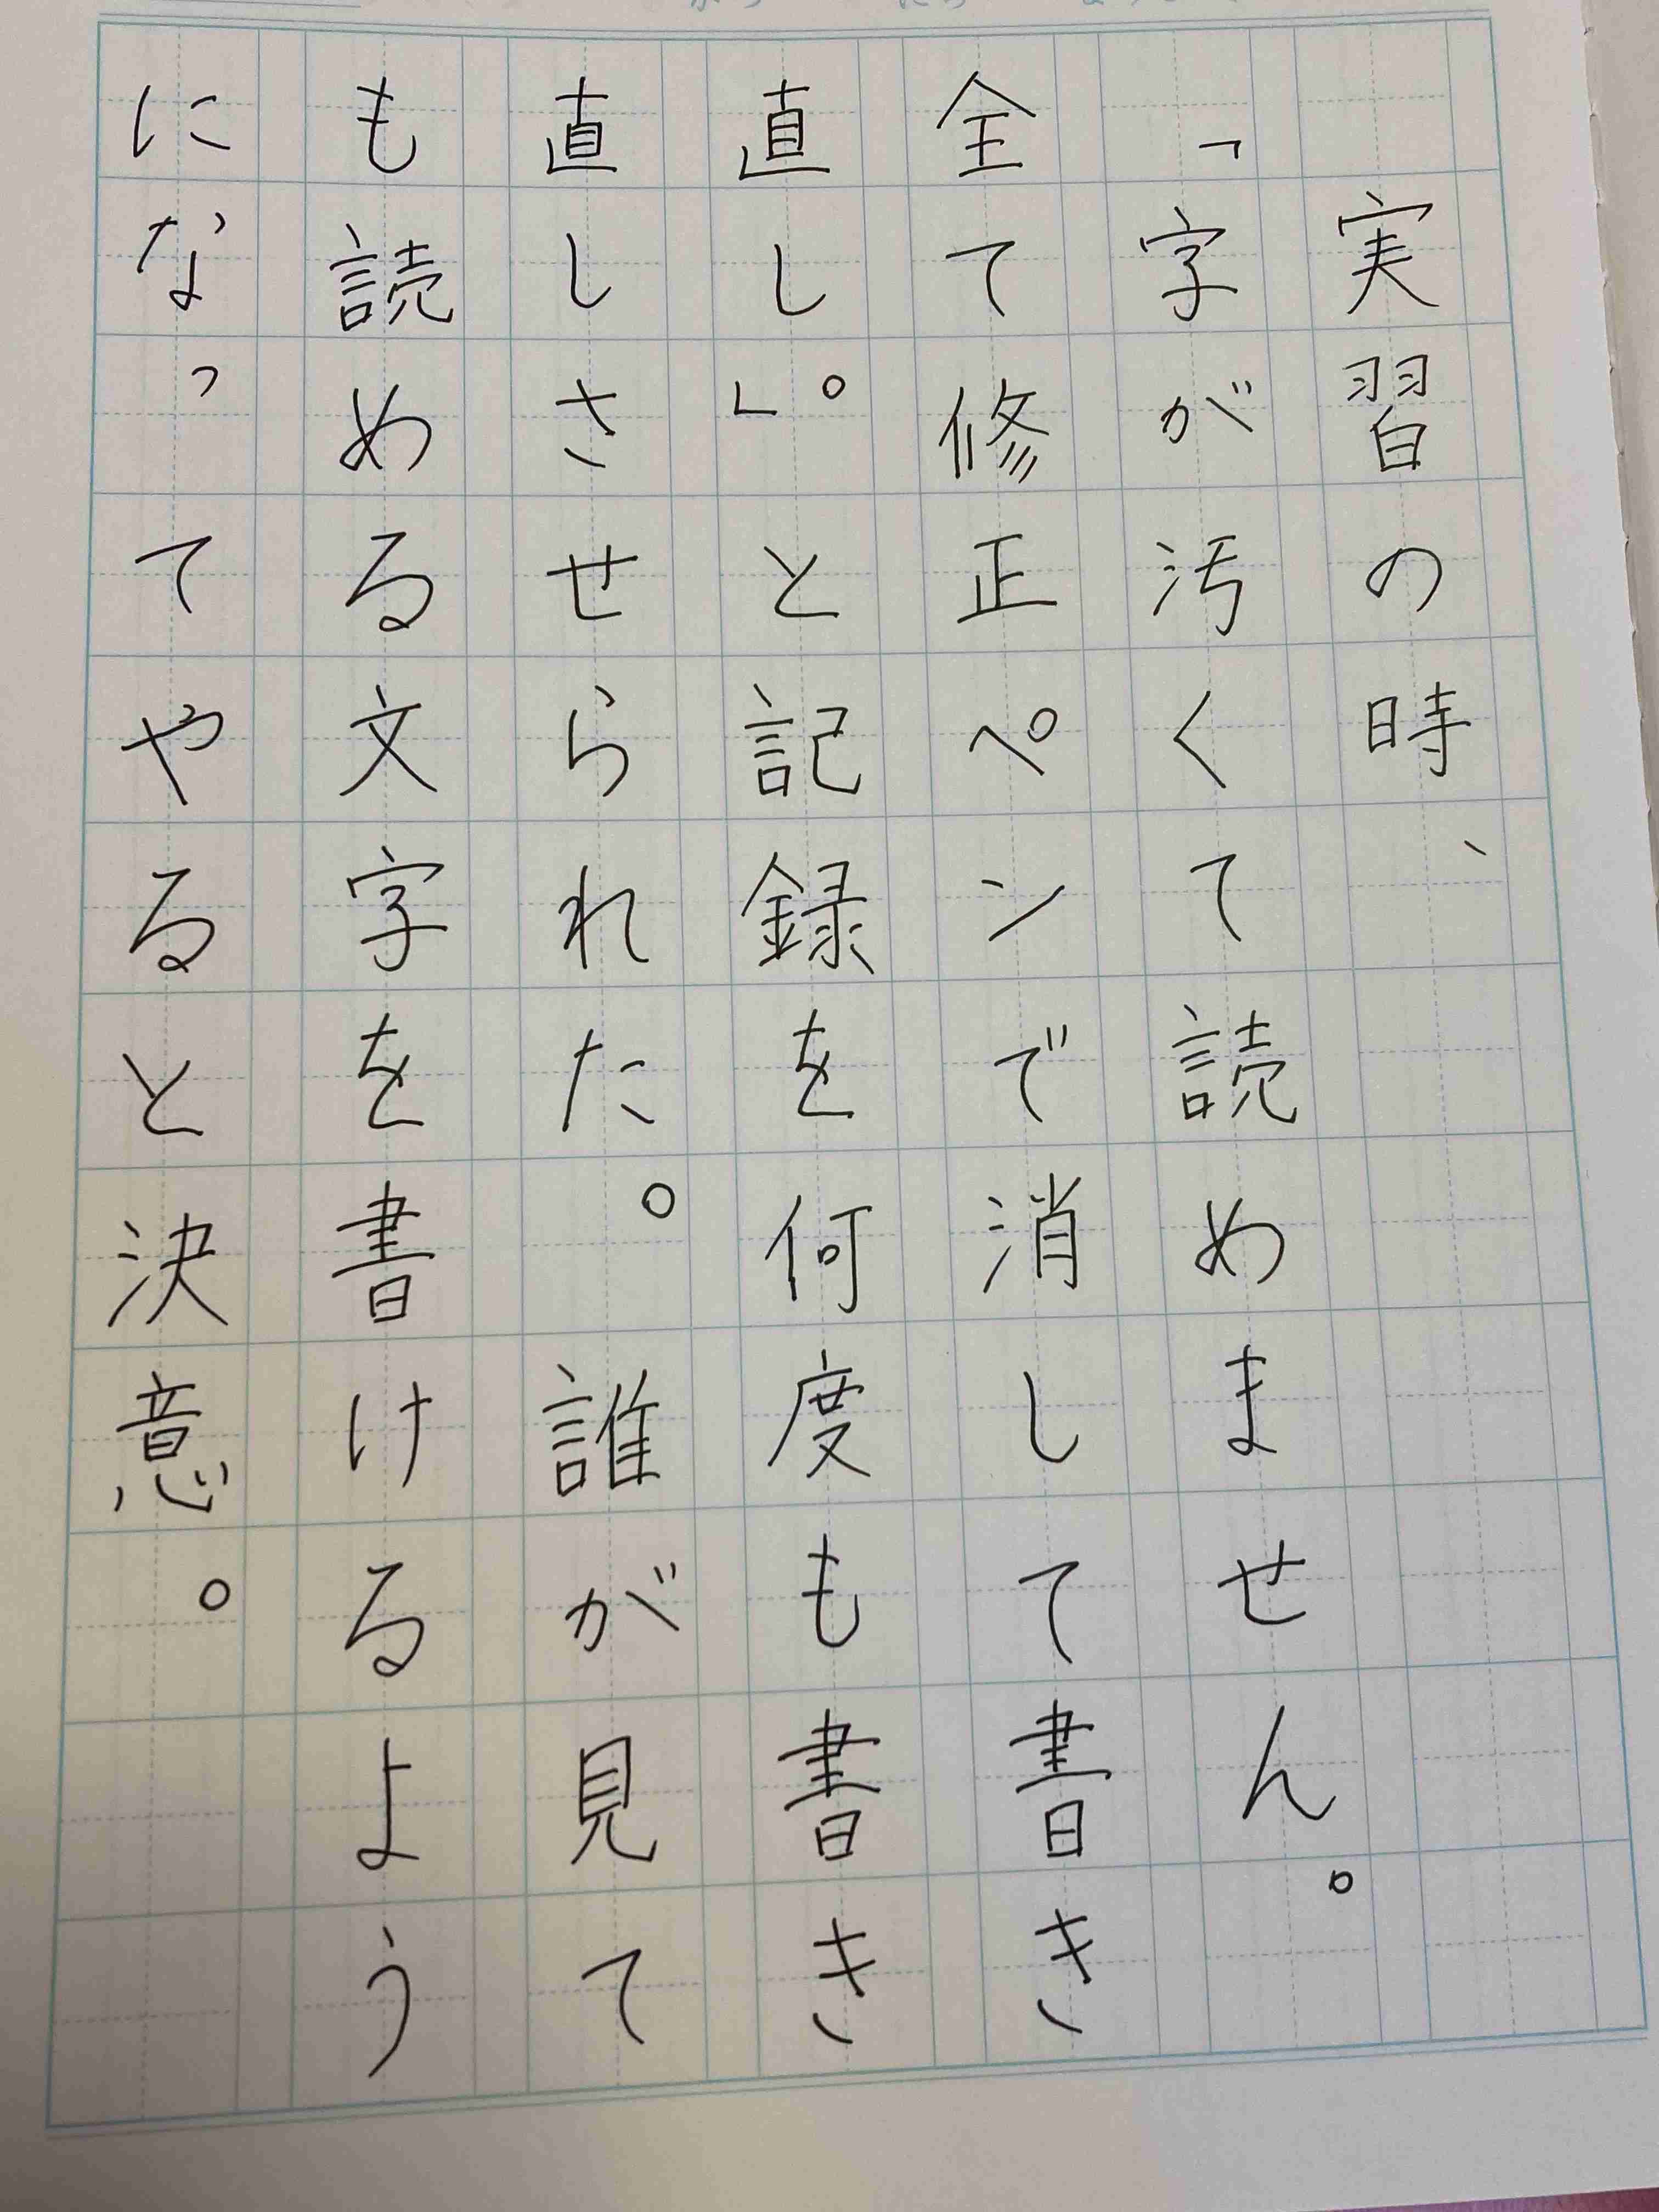 実習の時、
「字が汚くて読めません。
全て修正ペンで消して書き
直し。」と記録を何度も書き
直しさせられた。誰が見て
も読める文字を書けるよう
になってやると決意。